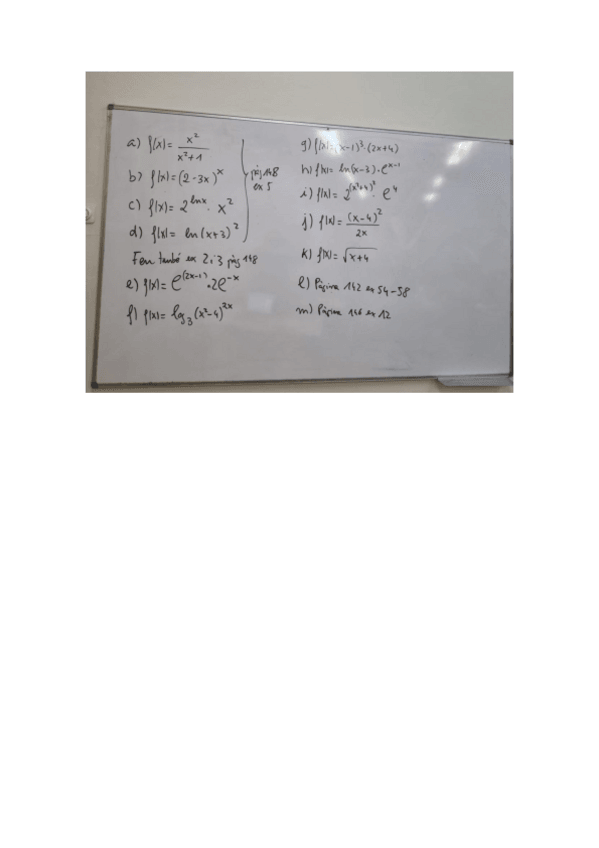 a) f(x) = x²/(x²+1)
b) f(x) = (2-3x)^x
c) f(x) = 2^(ln x) · x²
d) f(x) = ln(x+3)²
pàg 148
ex 5
Feu també ex 2 i 3 pàg 148
e) f(x) = e^(2x-1) · 2e^(-x)
f) f(x) = log₃(x³-4)^(2x)
g) f(x) = (x-1)³·(2x+4)
h) f(x) = ln(x-3)·e^(x-1)
i) f(x) = 2^((x²+4)³) · e⁴
j) f(x) = (x-4)²/2x
k) f(x) = √(x+4)
l) Pàgina 142 ex 54-58
m) Pàgina 146 ex 12